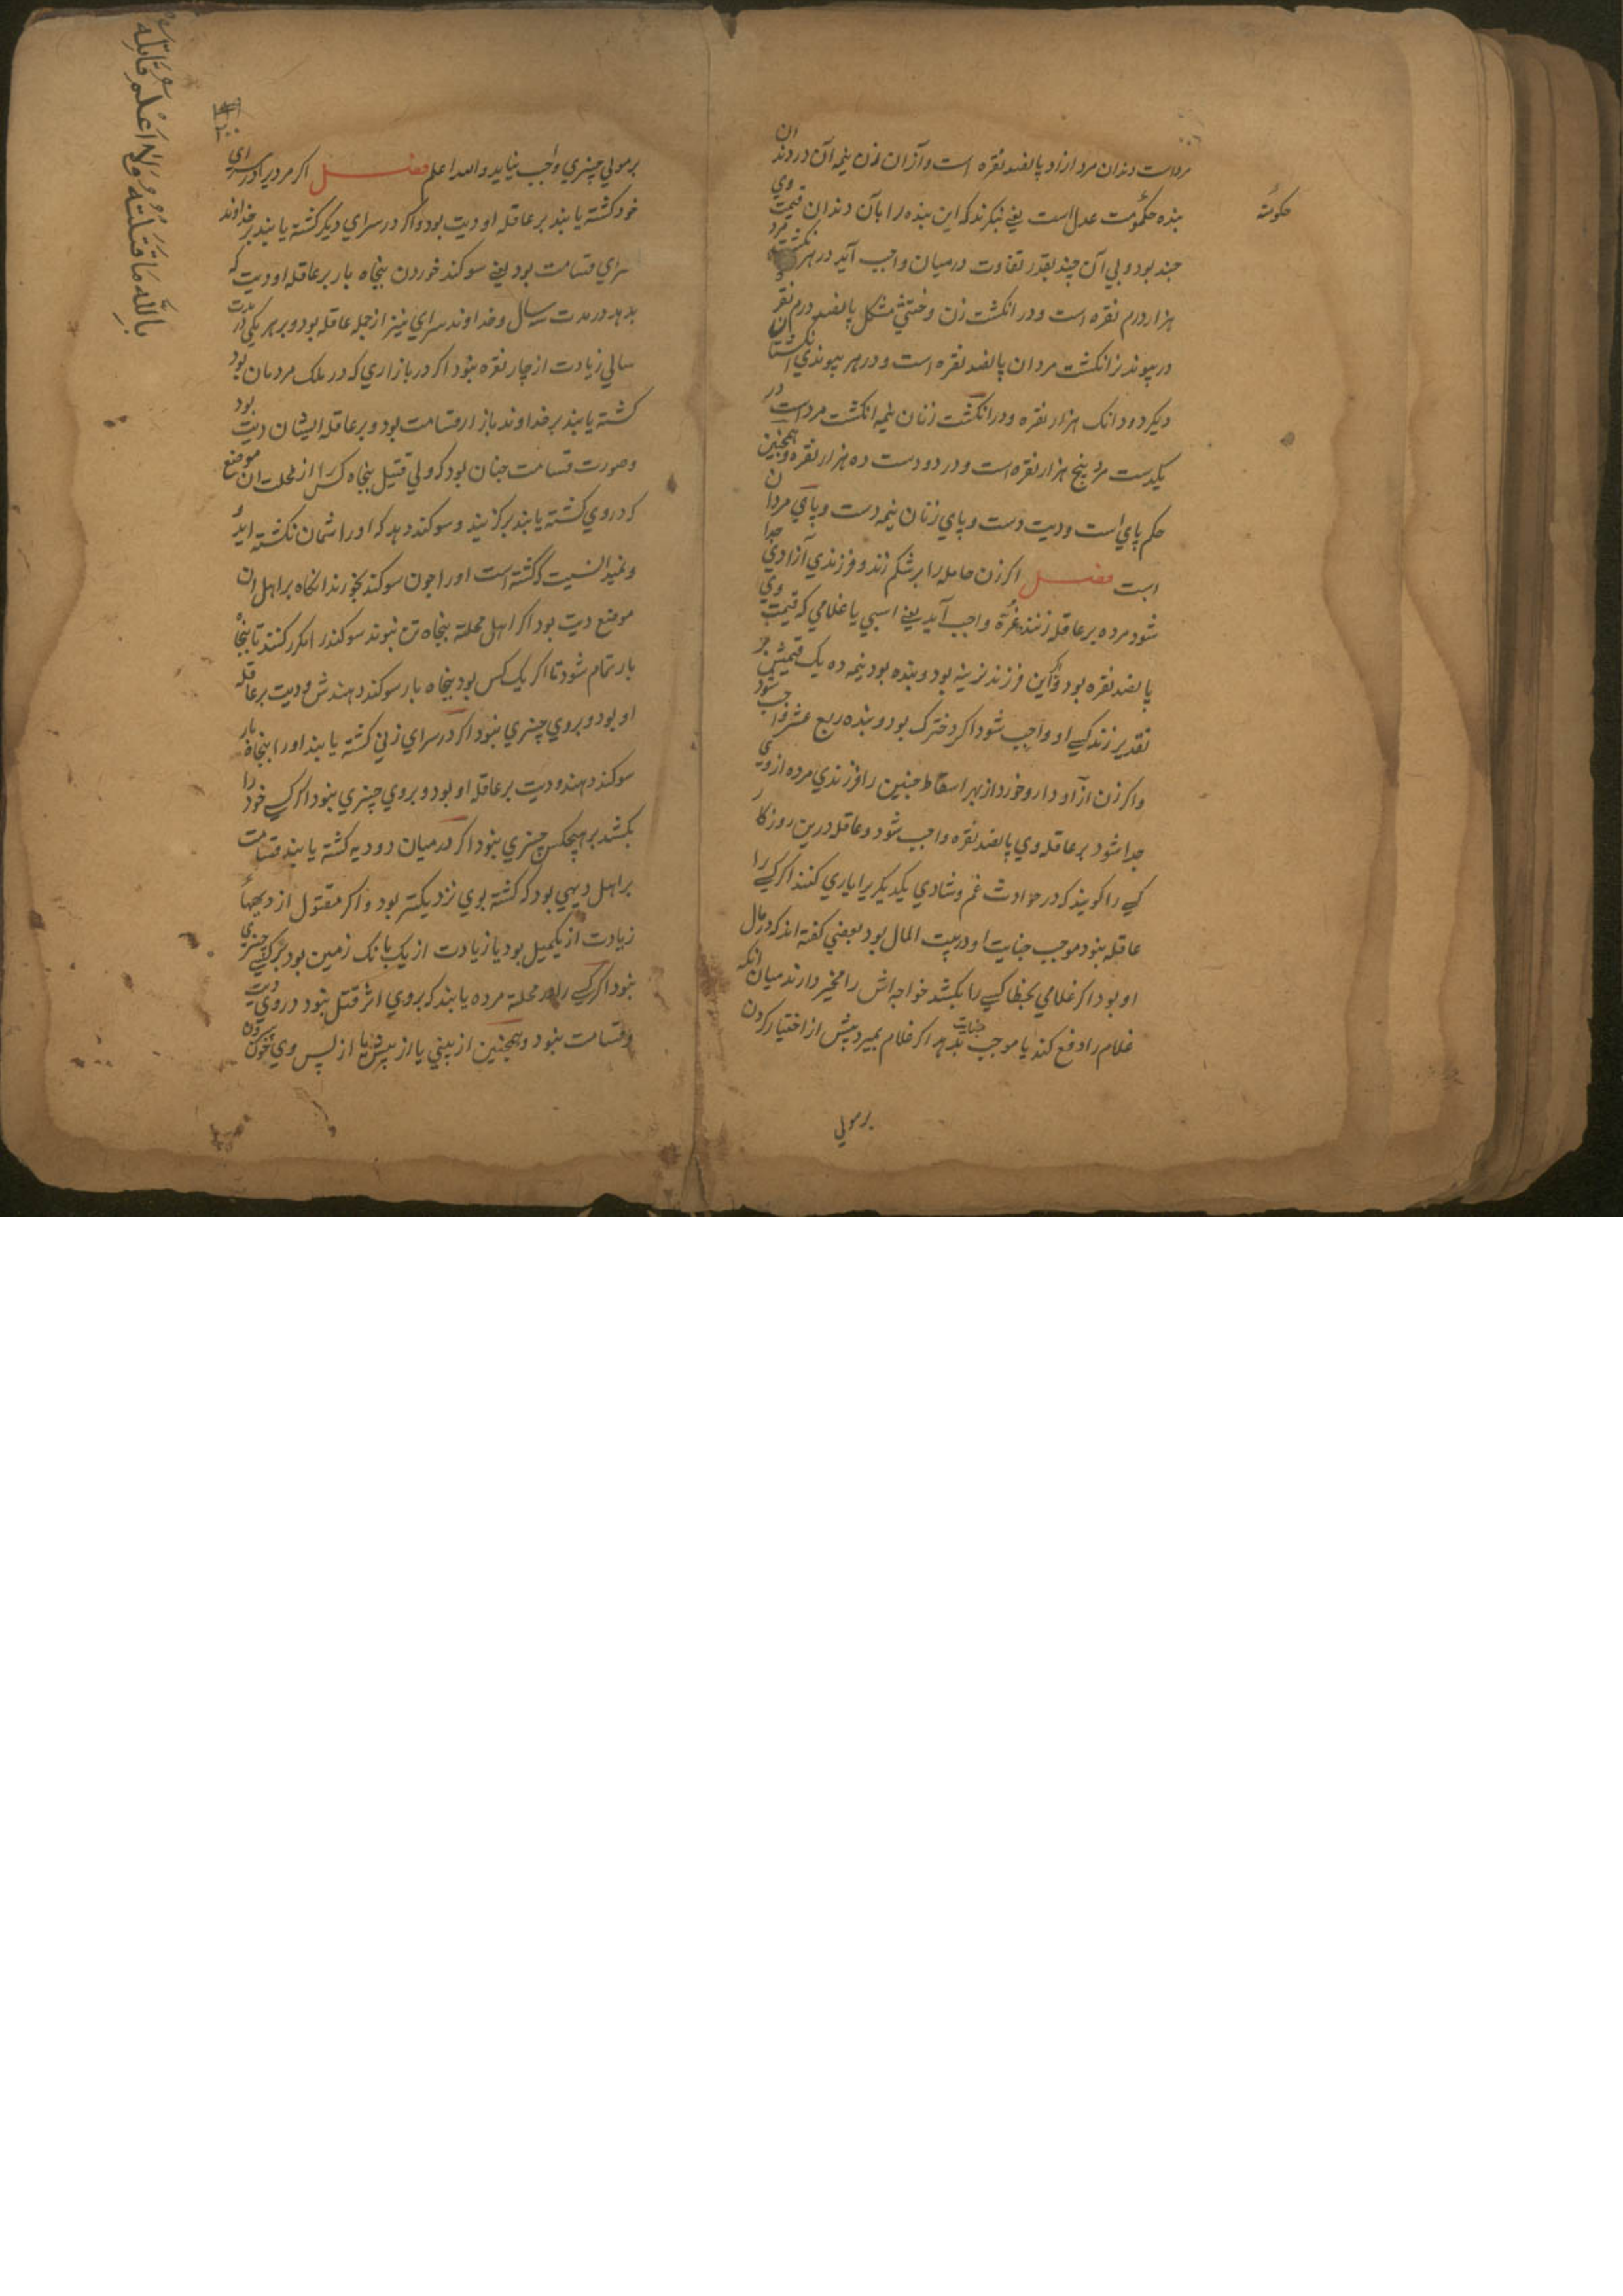 مرداست دندان مرد ازاد پانصد نقره است و ازان زن نیمه آن در دندان
بنده حکومت عدل است یعنے بنگرند که این بنده را بآن دندان قیمت وي
حکومة
چند بود و بي آن چند بقدر تفاوت درمیان واجب آید در هر انگشت مرد
هزار درم نقره است و در انکشت زن و خنثي مشکل پانصد درم نقره
در پیوند نر انکشت مردان پانصد نقره است و در هر پیوندي انکشتان
دیکر دودانک هزار نقره و در انکشت زنان نیمه انکشت مرداست در
یکدست مرد پنج هزار نقره است و در دو دست ده هزار نقره و همچنین
حکم پاي است و دیت دست و پاي زنان نیمه دست و پاي مردان
است فصل اکر زن حامله را بر شکم زند و فرزندي آزاد وي جدا
شود مرده بر عاقله زننده غرة واجب آید یعنے اسپي یا غلامي که قیمت وي
پانصد نقره بود و اکر این فرزند نرینه بود و بنده بود نیمه ده یک قیمتش بر
تقدیر زندکے او واجب شود اکر دخترک بود و بنده ربع عشر واجب شود
واکر زن ازاد دارو خورد از بهر اسقاط جنین را فرزندي مرده از وي
جدا شود بر عاقله وي پانصد نقره واجب شود و عاقله درین روزکار
کسے را کویند که در حوادث غم و شادي یکدیکر را یاري کنند اکر کسے را
عاقله نبود موجب جنایت او در بیت المال بود بعضي کفته اند که در مال
او بود اکر غلامي بخطا کسے را بکشد خواجه اش را مخیر دارند میان انکه
غلام را دفع کند یا موجب جنایت بدهد اکر غلام بمیرد پیش از اختیار کردن
برمولي
برمولي چیزي واجب نیاید والله اعلم فصل اکر مردیرا در سراي
خود کشته یابند بر عاقله او دیت بود و اکر در سراي دیکر کشته یابند بر خداوند
سراي قسامت بود یعنے سوکند خوردن پنجاه بار بر عاقله او دیت که
بدهد در مدت سه سال و خداوند سراي نیز از جمله عاقله بود و بر هر یکي در مدت
سالي زیادت از چهار نقره نبود اکر در بازاري که در ملک مردمان بود
کشته یابند بر خداوند بازار قسامت بود و بر عاقله ایشان دیت بود
و صورت قسامت چنان بود که ولي قتیل پنجاه کس را از محلت ان موضع
که در وي کشته یابند بر کزیند و سوکند دهد که او را شمان نکشته اید و
و نمیدانسیت که کشته است او را چون سوکند بخورند انکاه بر اهل ان
موضع دیت بود اکر اهل محلة پنجاه تن نبوند سوکند را مکرر کنند تا پنجاه
بار تمام شود تا اکر یک کس بود پنجاه بار سوکند دهندش و دیت بر عاقله
او بود و بر وي چیزي نبود اکر در سراي زني کشته یابند او را پنجاه بار
سوکند دهند و دیت بر عاقله او بود و بر وي چیزي نبود اکر کسے خود را
بکشد بر هیچکس چیزي نبود اکر در میان دو دیه کشته یابند قسامت
بر اهل دیهي بود که کشته بوي نزدیکتر بود و اکر مقتول از دیهها
زیادت از یکمیل بود یا زیادت از یک بانک زمین بود بر کسے چیزي
نبود اکر کسے را در محلة مرده یابند که بر وي اثر قتل نبود در وي دیت
و قسامت نبود و همچنین از بیني یا از پیش یا از پس وي خون
باللّه ما قتلته ولا اعلم قاتله